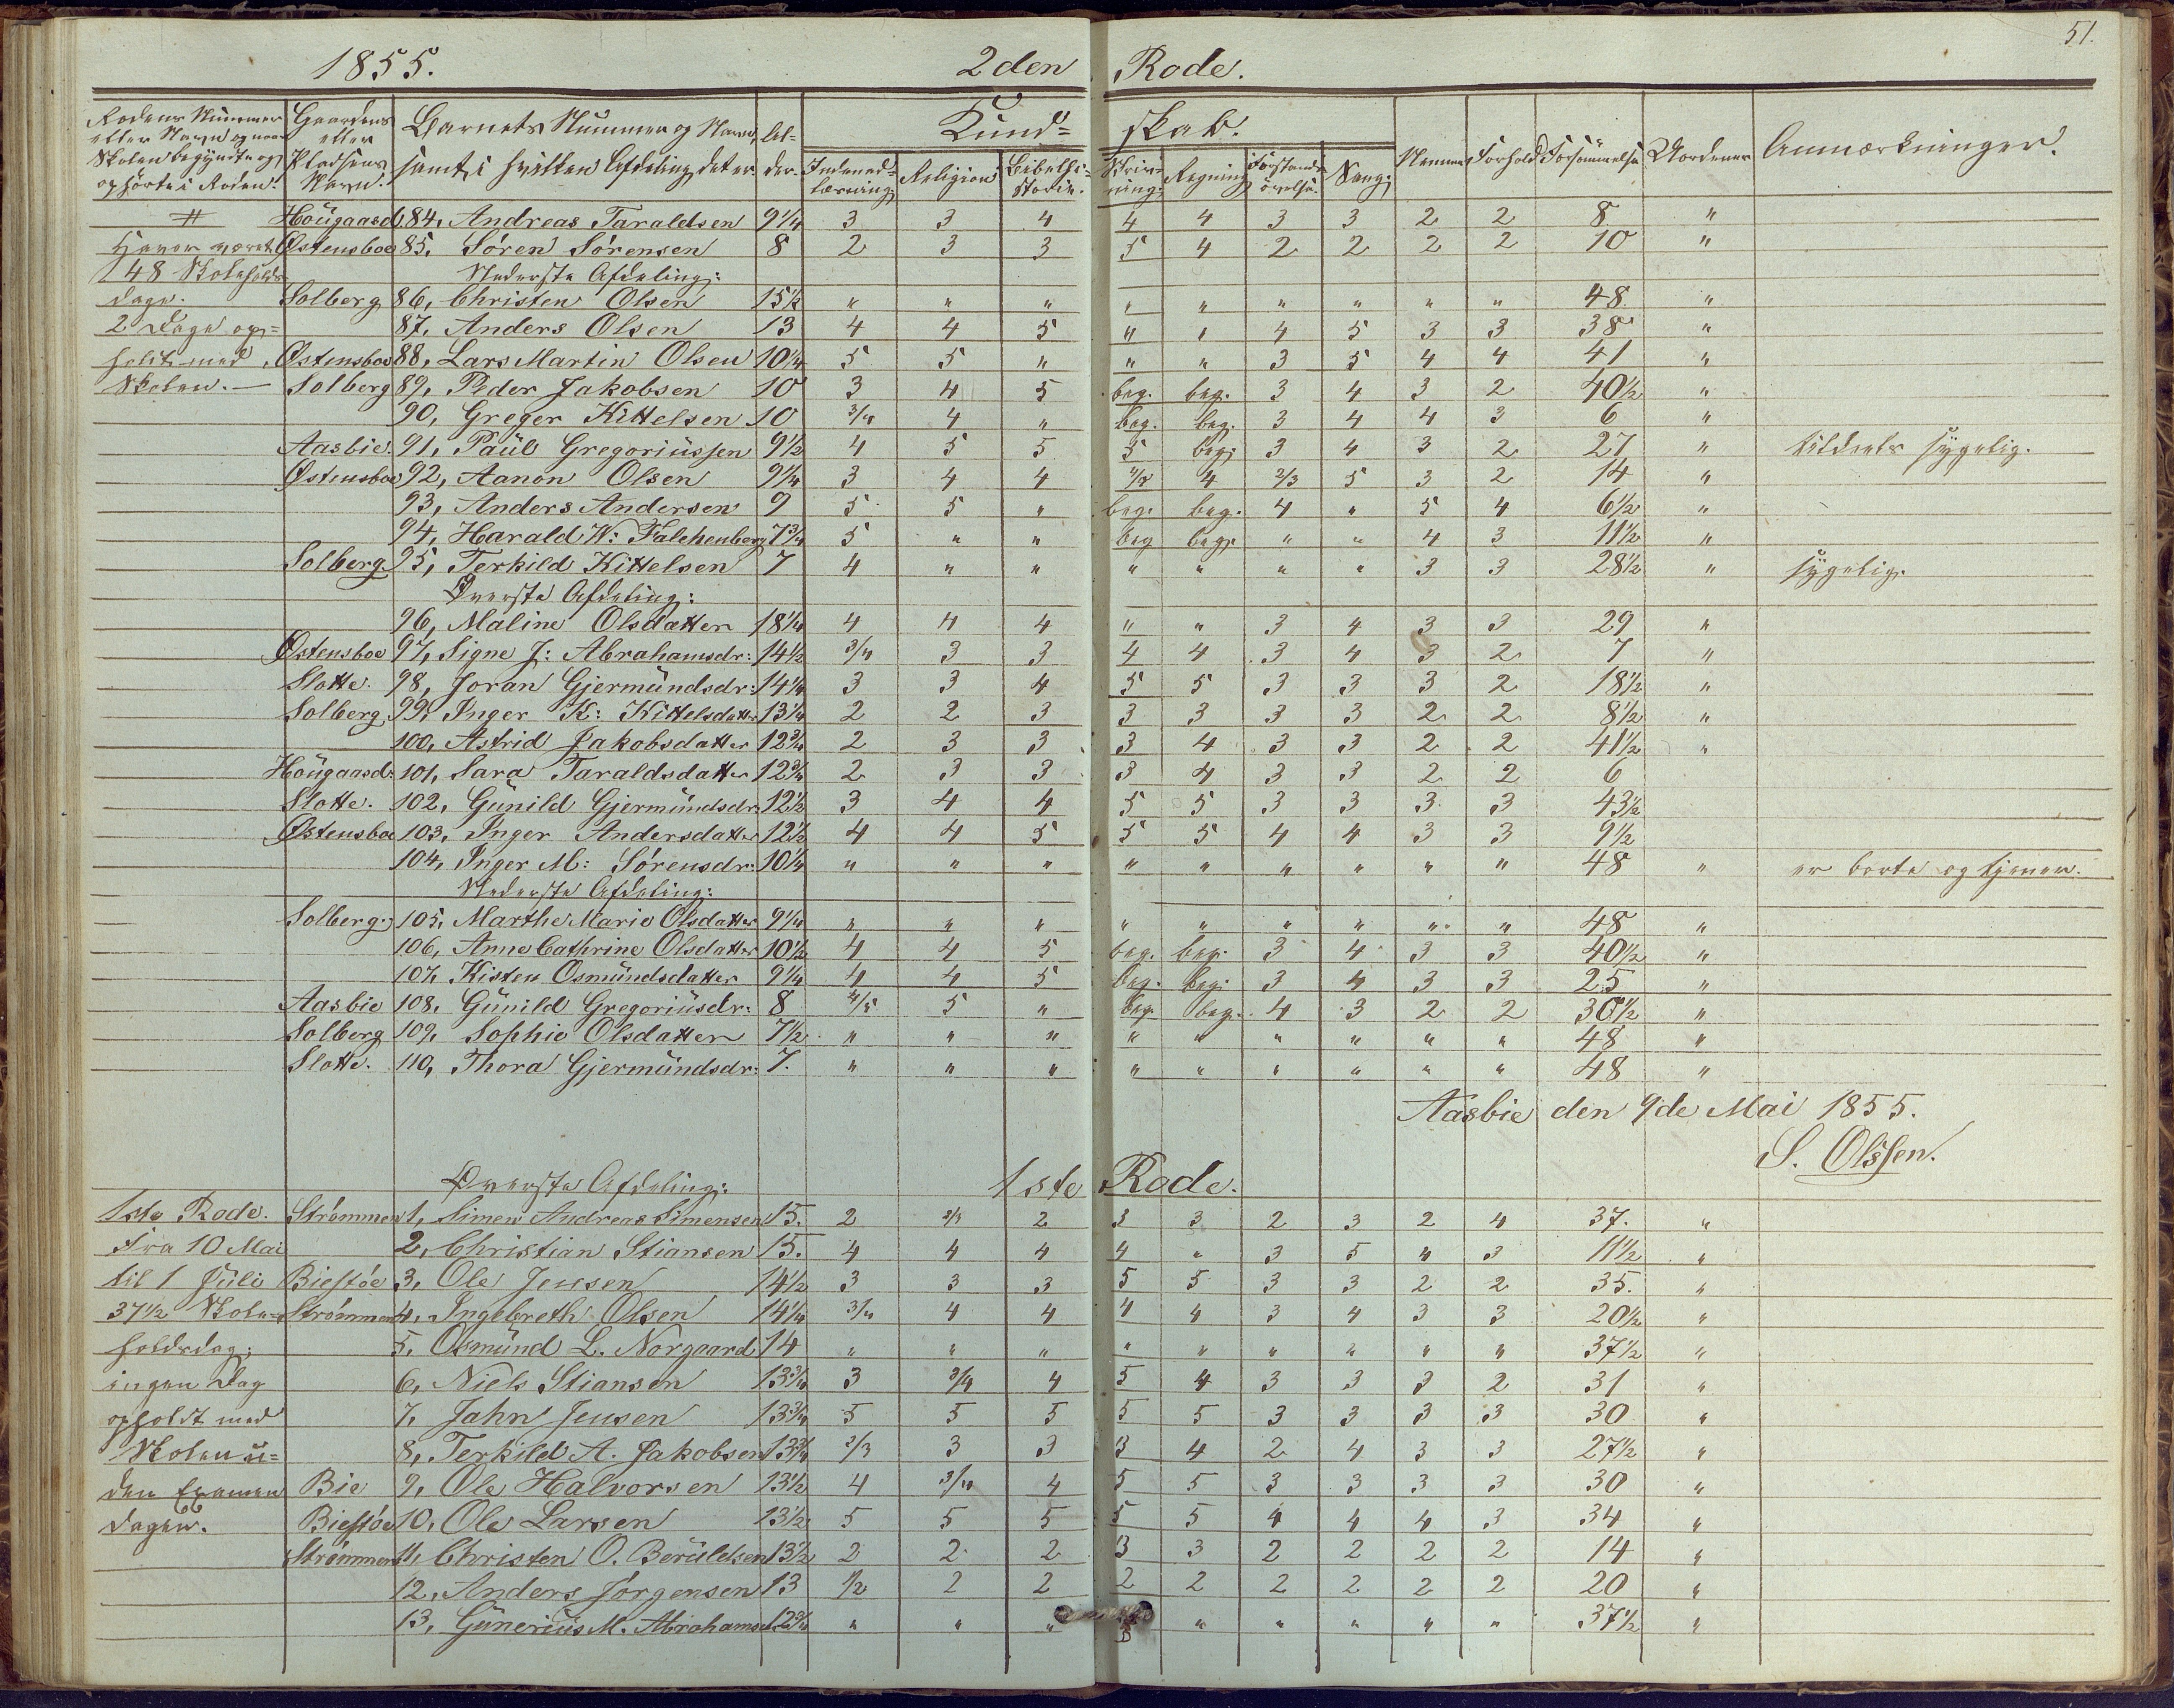 51.
1855. 2den Rode.
Rodens Nummer eller Navn og naar Skolen begyndte og ophörte i Roden. Gaardens eller Pladsens Navn. Barnets Nummer og Navn, samt i hvilken Afdeling det er. Al-der. Kund= skab. Nemme Forhold Forsømmelse Uordener Anmærkninger.
Indenad-læsning Religion Bibelhi-storie. Skriv-ning. Regning Forstands-övelse. Sang.
# Hougaasd. 84, Andreas Taraldsen 9 1/4 3 3 4 4 4 3 3 2 2 8 "
Østensboe 85, Sören Sörensen 8 2 3 3 5 4 2 2 2 2 10 "
48 Skoleholds Nederste Afdeling:
dage. Solberg 86, Christen Olsen 15 1/2 " " " " " " " " " 48 "
2 Dage op= 87, Anders Olsen 13 4 4 5 " " 4 5 3 3 38 "
holdt med Østensboe 88, Lars Martin Olsen 10 1/4 5 5 " " " 3 5 4 4 41 "
Skolen. — Solberg 89, Peder Jakobsen 10 3 4 5 beg. beg. 3 4 3 2 40 1/2 "
90, Greger Kittelsen 10 3/4 4 " beg. beg. 3 4 4 3 6 "
Aasbie. 91, Paul Gregoriussen 9 1/2 4 5 5 5 beg. 3 4 3 2 27 " tildeels sygelig.
Østensboe 92, Aanon Olsen 9 1/4 3 4 4 4/5 4 2/3 5 3 2 14 "
93, Anders Andersen 9 5 5 " beg. beg. 4 " 5 4 6 1/2 "
94, Harald W: Falchenberg 7 3/4 5 " " beg beg. " " 4 3 11 1/2 "
Solberg. 95, Terkild Kittelsen 7 4 " " " " " " 3 3 28 1/2 " sygelig.
Øverste Afdeling:
96, Maline Olsdatter 18 1/4 4 4 4 " " 3 4 3 3 29 "
Østensboe 97, Signe J: Abrahamsdr: 14 1/2 3/4 3 3 4 4 3 4 3 2 7 "
Slotte. 98, Joran Gjermundsdr: 14 1/4 3 3 4 5 5 3 3 3 2 18 1/2 "
Solberg 99, Inger K: Kittelsdatter 13 1/4 2 2 3 3 3 3 3 2 2 8 1/2 "
100, Astrid Jakobsdatter 12 3/4 2 3 3 3 4 3 3 2 2 41 1/2 "
Hougaasd. 101, Sara Taraldsdatter 12 3/4 2 3 3 3 4 3 3 2 2 6
Slotte. 102, Gunild Gjermundsdr. 12 1/2 3 4 4 5 5 3 3 3 3 43 1/2
Østensboe 103, Inger Andersdatter 12 1/2 4 4 5 5 5 4 4 3 3 9 1/2
104, Inger M: Sörensdr: 10 1/4 " " " " " " " " " 48 " er borte og tjener.
Nederste Afdeling:
Solberg. 105, Marthe Marie Olsdatter 9 1/4 " " " " " " " " " 48 "
106, Anne Cathrine Olsdatter 10 1/2 4 4 5 beg. beg. 3 4 3 3 40 1/2 "
107, Kisten Osmundsdatter 9 1/4 4 4 5 beg. beg. 3 4 3 3 25 "
Aasbie 108, Gunild Gregoriusdr: 8 4/5 5 " beg. beg. 4 3 2 2 30 1/2 "
Solberg 109, Sophie Olsdatter 7 1/2 " " " " " " " " " 48 "
Slotte. 110, Thora Gjermundsdr: 7. " " " " " " " " " 48 "
Aasbie den 9de Mai 1855.
S. Olssen.
Øverste Afdeling: 1ste Rode.
1ste Rode. Strømmen 1, Simen Andreas Simensen 15. 2 2/3 2 3 3 2 3 2 4 37. "
Fra 10 Mai 2, Christian Stiansen 15. 4 4 4 4 " 3 5 4 3 11 1/2 "
til 1 Juli Biestöe 3, Ole Jensen 14 1/2 3 3 3 5 5 3 3 2 2 35. "
37 1/2 Skole- Strømmen 4, Ingebreth Olsen 14 1/4 3/4 4 4 4 4 3 4 3 3 20 1/2 "
holdsdag; 5, Osmund L. Norgaard 14 " " " " " " " " " 37 1/2 "
ingen Dag 6, Niels Stiansen 13 3/4 3 3/4 4 5 4 3 3 3 2 31 "
opholdt med 7, Jahn Jensen 13 3/4 5 5 5 5 5 3 3 3 3 30 "
Skolen u= 8, Terkild A. Jakobsen 13 3/4 2/3 3 3 3 4 2 4 3 3 27 1/2 "
den Examen Bie 9, Ole Halvorsen 13 1/2 4 3/4 4 5 5 3 3 3 3 30 "
dagen. Biestöe 10, Ole Larsen 13 1/2 5 5 5 5 5 4 4 4 3 34 "
Strømmen 11, Christen O. Beruldsen 13 1/2 2 2 2 3 3 2 2 2 2 14 "
12, Anders Jörgensen 13 1/2 2 2 2 2 2 2 2 2 20 "
13, Gunerius M. Abrahams. 12 3/4 " " " " " " " " 37 1/2 "